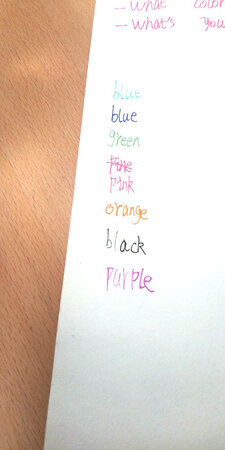 - What color
- What's you
blue
blue
green
Pink
orange
black
purple